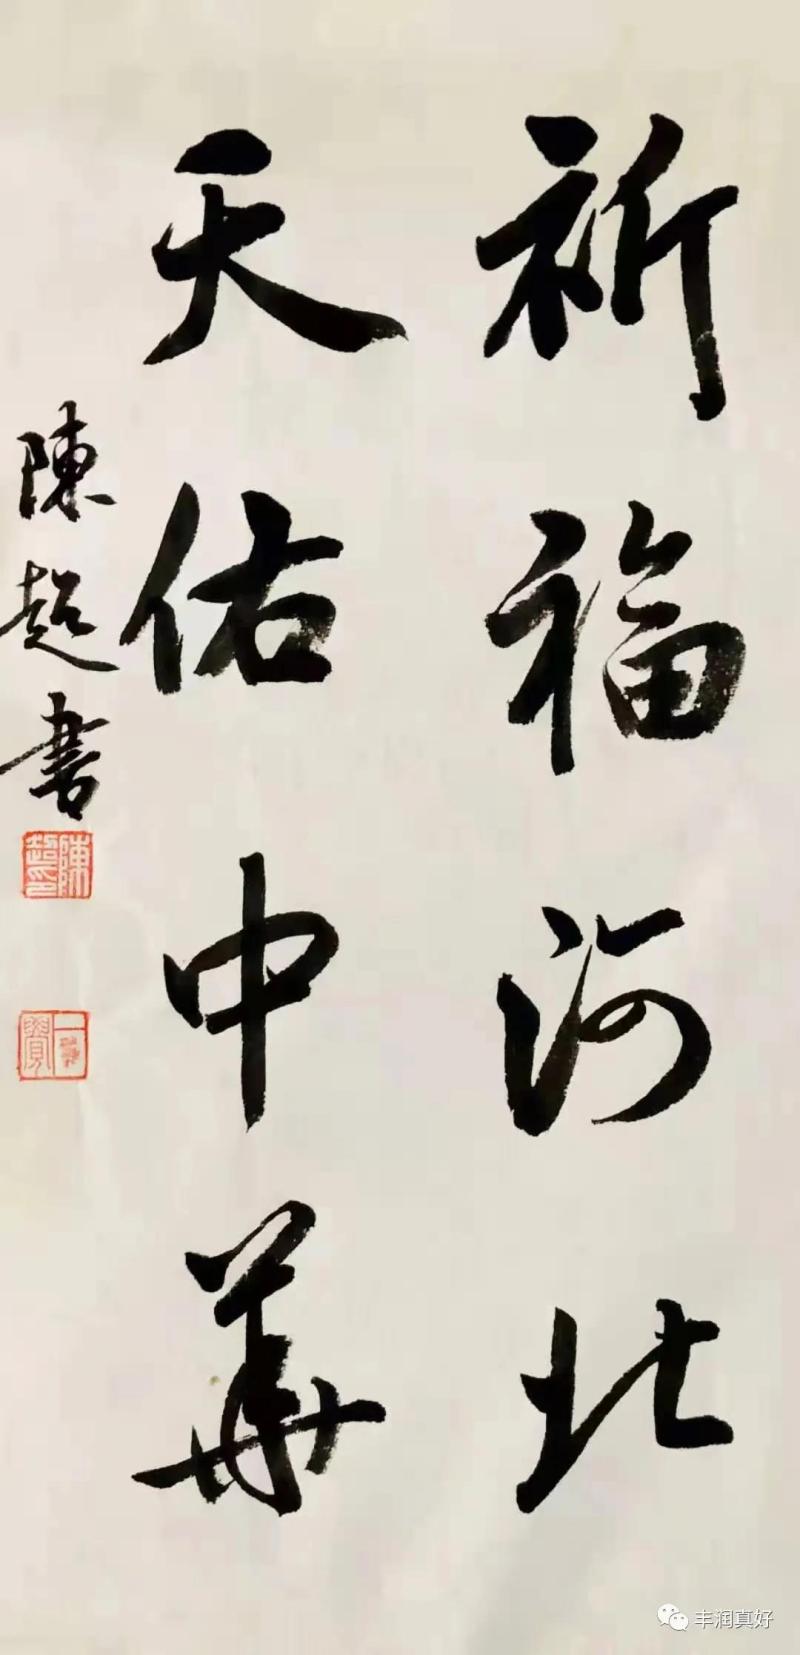 祈福河北
天佑中華
陳超書
陳超之印
丰润真好